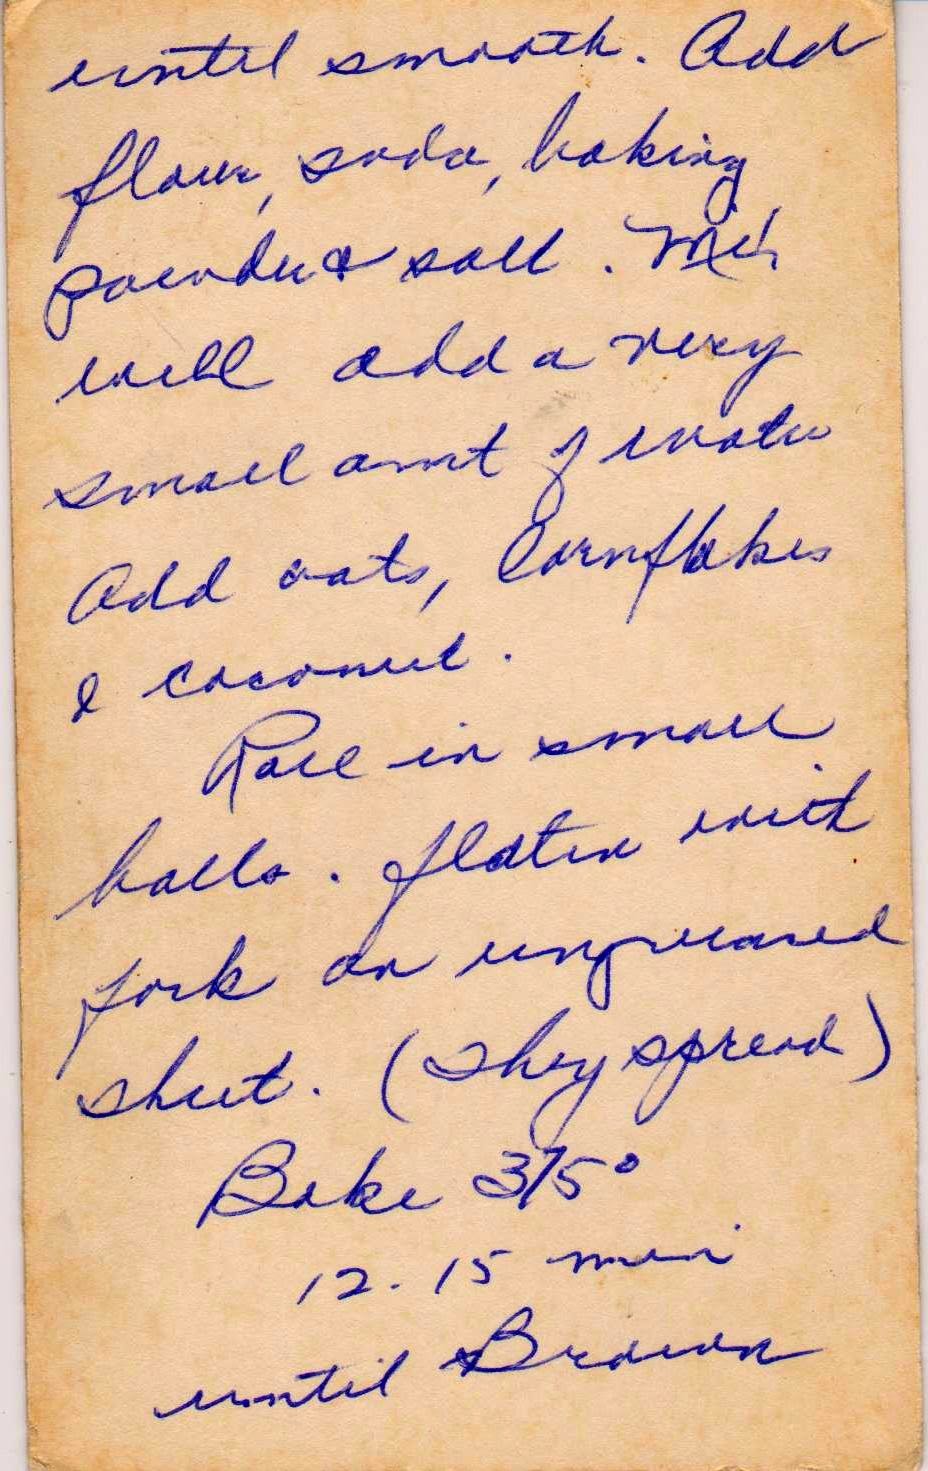 until smooth. Add
flour, soda, baking
powder & salt. Mix
well add a very
small amt of water
Add oats, Cornflakes
& coconut.
Roll in small
balls. flatten with
fork on ungreased
sheet. (They spread)
Bake 375°
12-15 min
until Brown